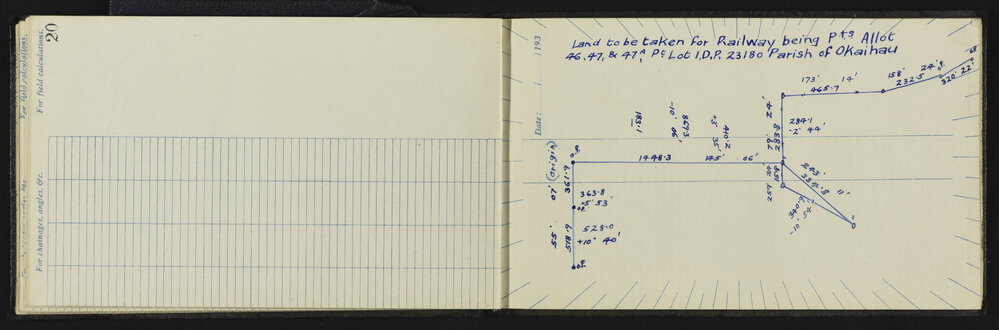 20
For field calculations.
For field calculations.
For chainages, angles, &c.
Date: / / 193
Land to be taken for Railway being Pts Allot
46, 47, & 47A, Pt Lot 1, D.P. 23180 Parish of Okaihau
173° 14'
465.7
158°
232.5
24'
o.p.
320° 22'
24'
79°
283.8
284.1
-2° 44'
183.1
-10° 06'
867.3
+3° 35'
1448.3
145° 06'
o.p.
07' (origin)
361.9
363.8
+5° 53'
o.p.
55°
518.9
528.0
+10° 40'
o.p.
259° 24'
15.8
243° 11'
334.8
340.9
-10° 54'